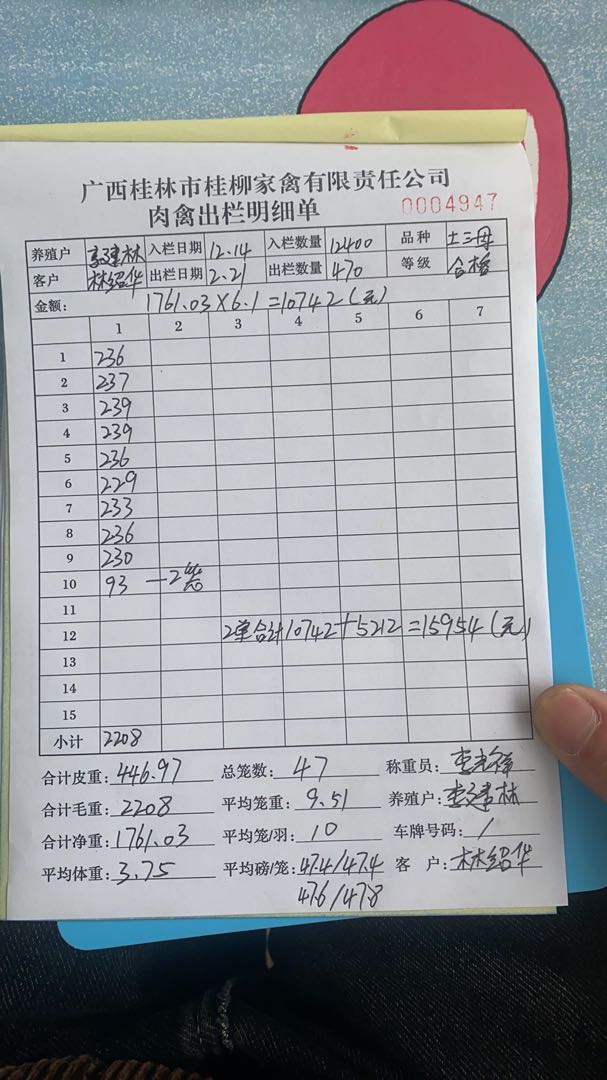 广西桂林市桂柳家禽有限责任公司
肉禽出栏明细单 0004947
养殖户 李建林 入栏日期 12.14 入栏数量 12400 品种 土三母
客户 林绍华 出栏日期 2.21 出栏数量 470 等级 合格
金额: 1761.03×6.1=10742(元)
1 2 3 4 5 6 7
1 236
2 237
3 239
4 239
5 236
6 229
7 233
8 236
9 230
10 93 —2笼
11
12 2单合计10742+5212=15954(元)
13
14
15
小计 2208
合计皮重: 446.97 总笼数: 47 称重员:
合计毛重: 2208 平均笼重: 9.51 养殖户: 李建林
合计净重: 1761.03 平均笼/羽: 10 车牌号码: /
平均体重: 3.75 平均磅/笼: 47.4/47.4 客 户: 林绍华
47.6/47.8